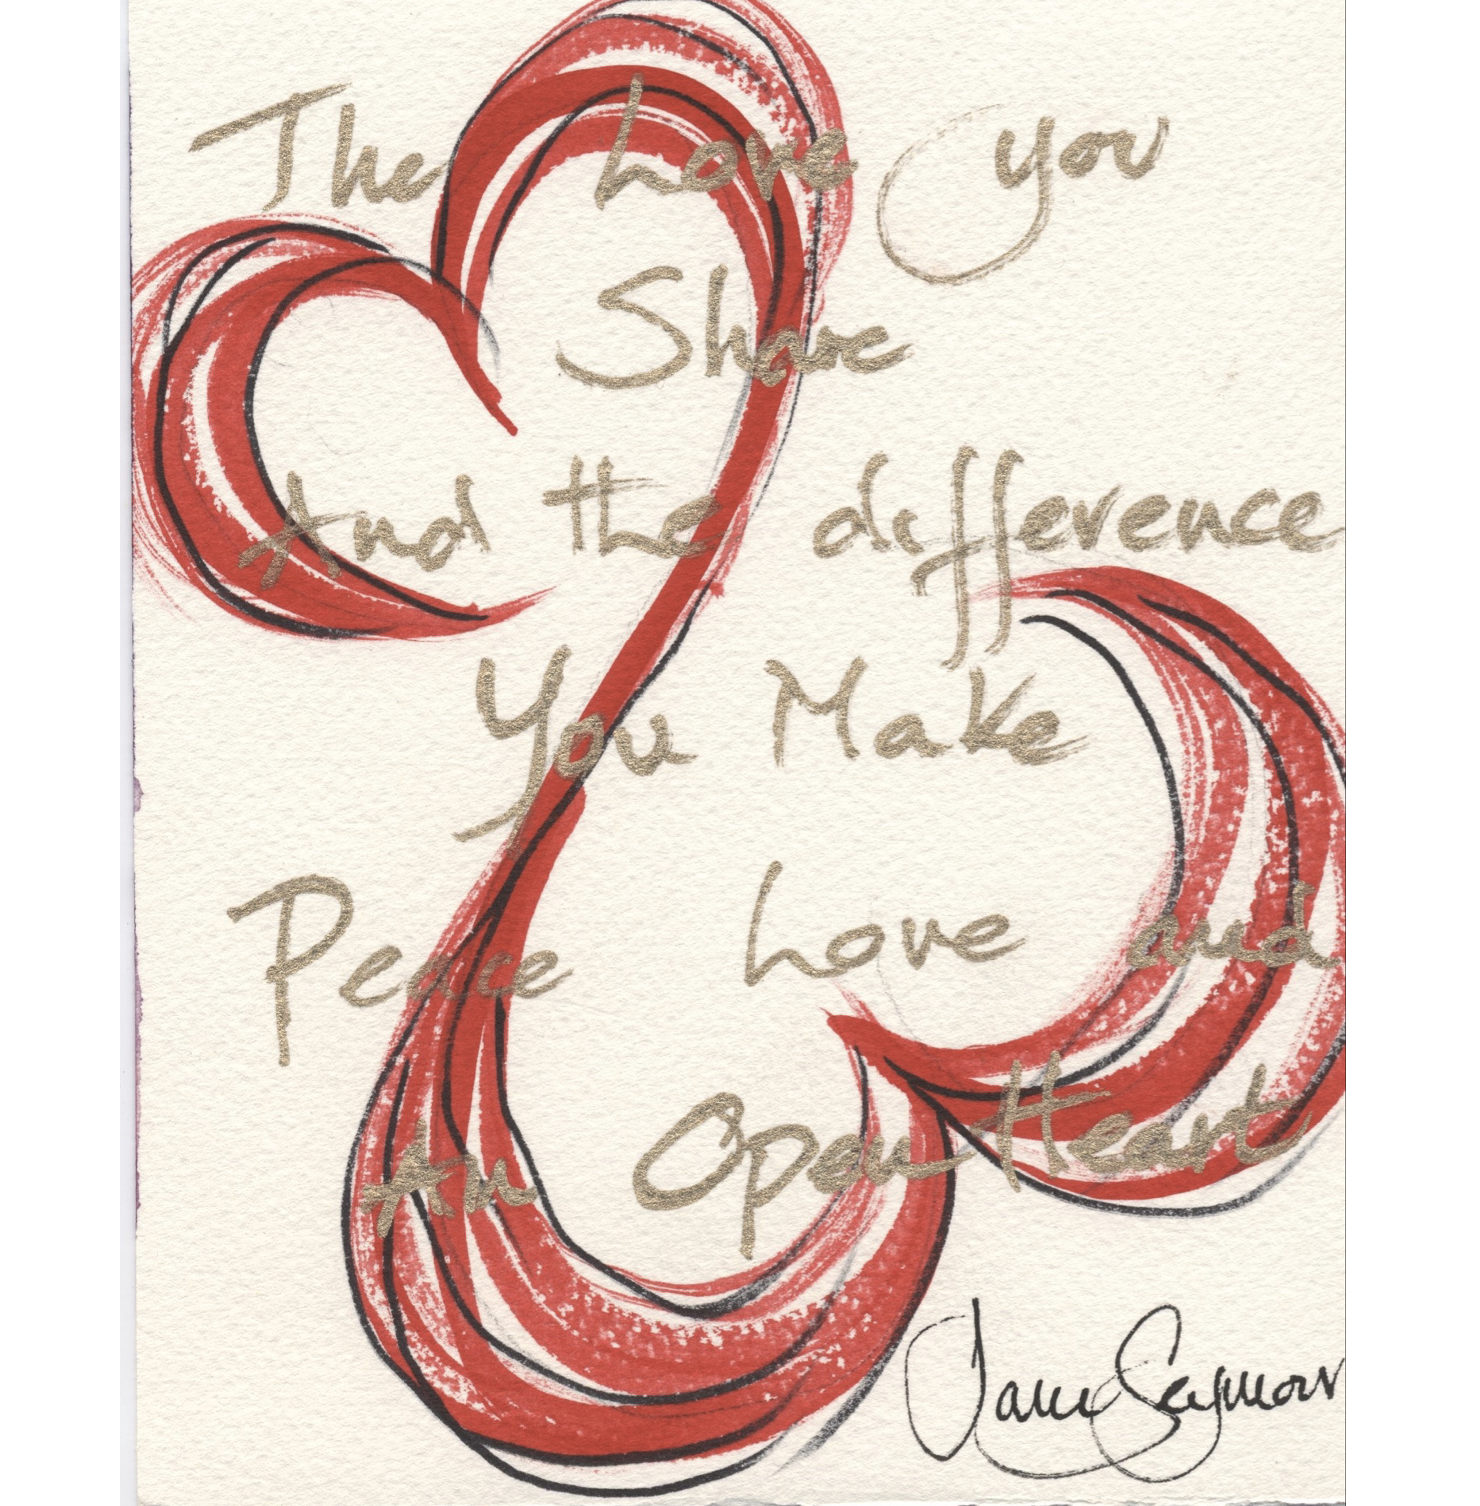 The Love you
Share
And the difference
You Make
Peace Love and
An Open Heart
Jane Seymour